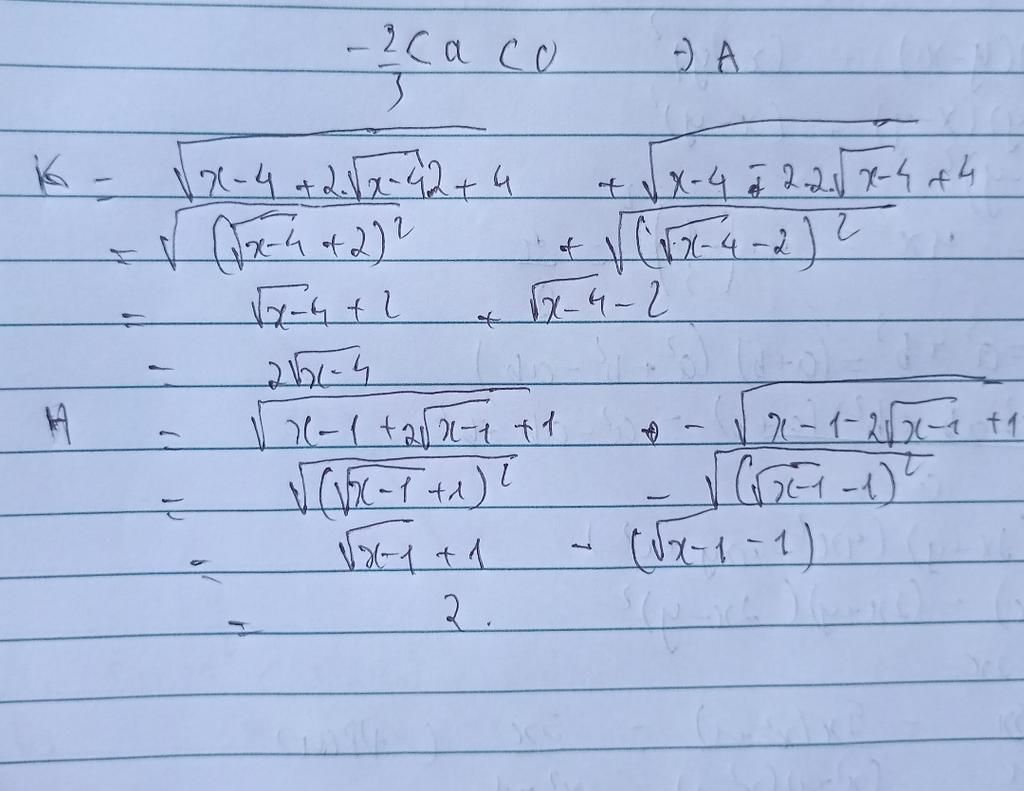 -2/3 < a < 0 => A
K = √(x-4+2.√(x-4)2+4) + √(x-4-2.2.√(x-4)+4)
= √((√(x-4)+2)²) + √((√(x-4)-2)²)
= √(x-4)+2 + √(x-4)-2
= 2√(x-4)
H = √(x-1+2√(x-1)+1) - √(x-1-2√(x-1)+1)
= √((√(x-1)+1)²) - √((√(x-1)-1)²)
= √(x-1)+1 - (√(x-1)-1)
= 2.